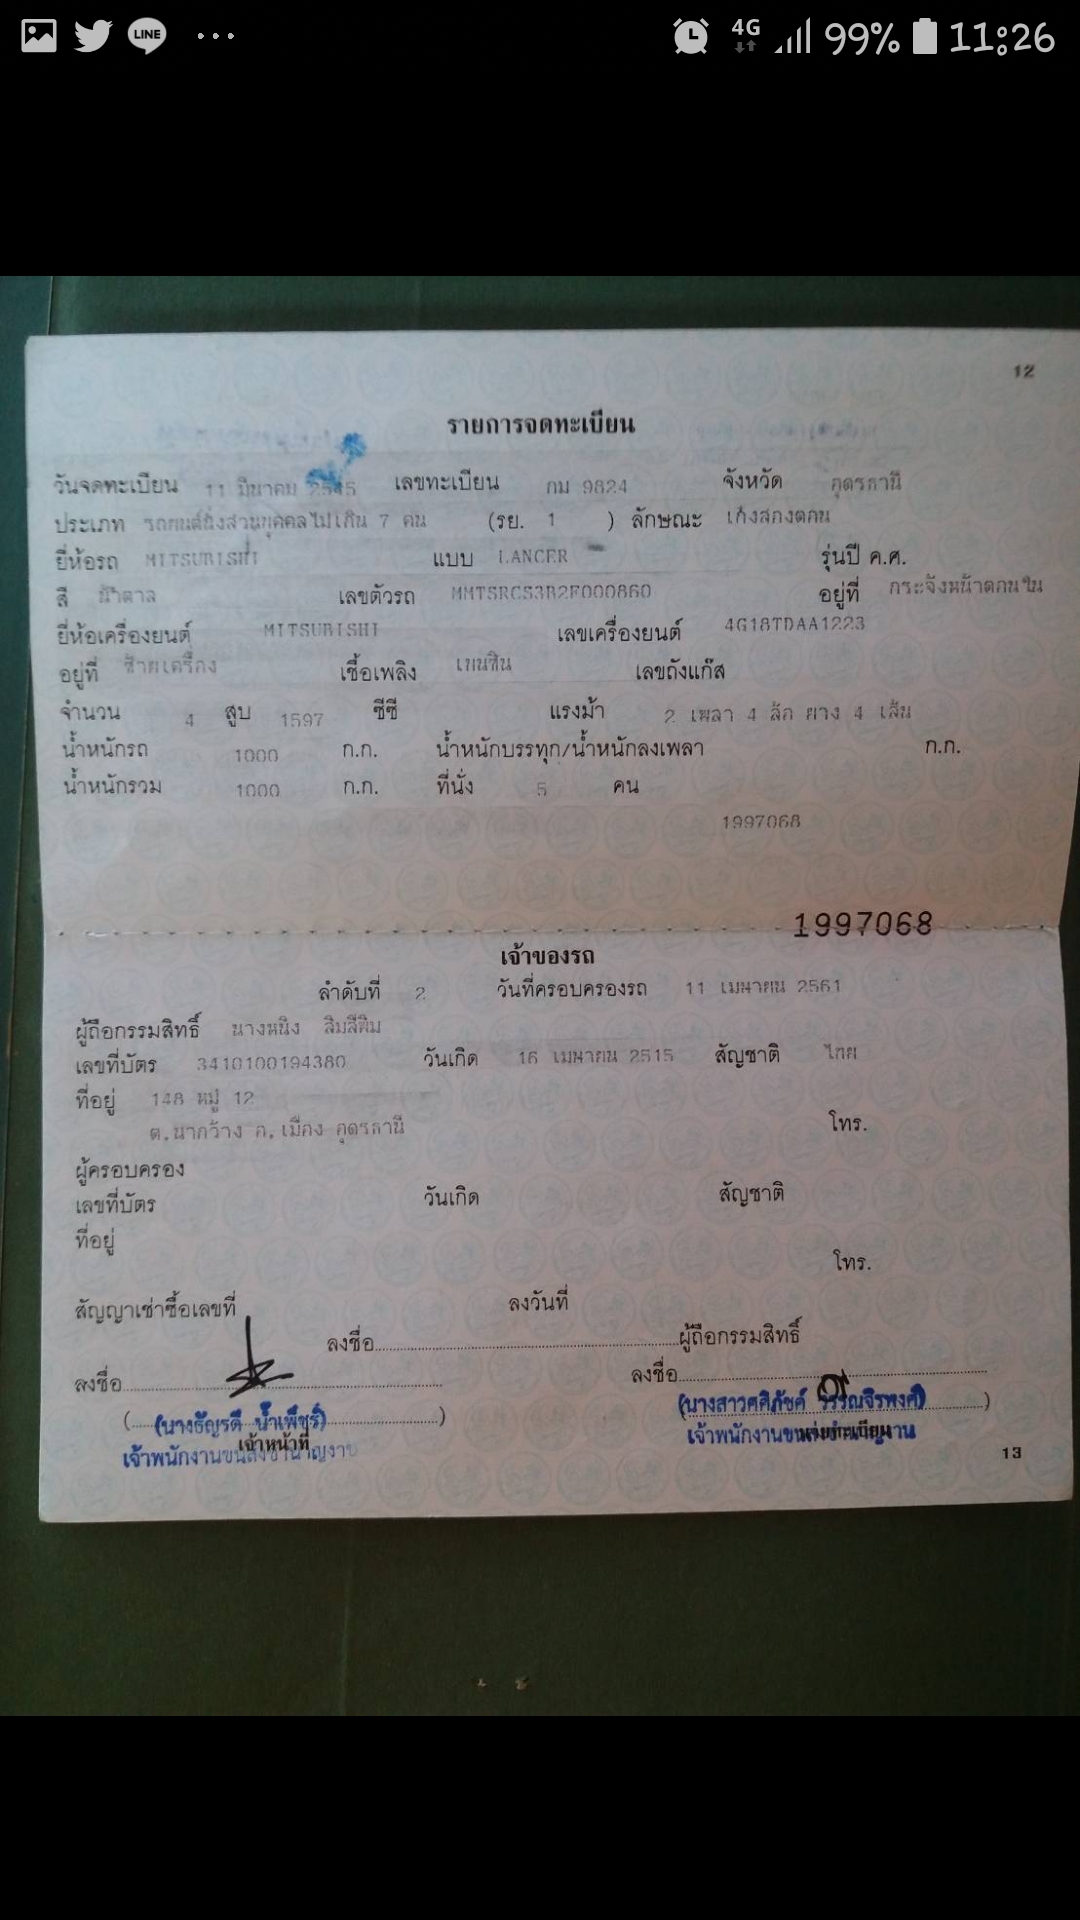 LINE
4G 99% 11:26
12
รายการจดทะเบียน
วันจดทะเบียน 11 มีนาคม 2545 เลขทะเบียน กม 9824 จังหวัด อุดรธานี
ประเภท รถยนต์นั่งส่วนบุคคลไม่เกิน 7 คน (รย. 1 ) ลักษณะ เก๋งสองตอน
ยี่ห้อรถ MITSUBISHI แบบ LANCER รุ่นปี ค.ศ.
สี น้ำตาล เลขตัวรถ MMTSRCS3R2F000860 อยู่ที่ กระจังหน้าตอนใน
ยี่ห้อเครื่องยนต์ MITSUBISHI เลขเครื่องยนต์ 4G18TDAA1223
อยู่ที่ ซ้ายเครื่อง เชื้อเพลิง เบนซิน เลขถังแก๊ส
จำนวน 4 สูบ 1597 ซีซี แรงม้า 2 เพลา 4 ล้อ ยาง 4 เส้น
น้ำหนักรถ 1000 ก.ก. น้ำหนักบรรทุก/น้ำหนักลงเพลา ก.ก.
น้ำหนักรวม 1000 ก.ก. ที่นั่ง 5 คน
1997068
1997068
เจ้าของรถ
ลำดับที่ 2 วันที่ครอบครองรถ 11 เมษายน 2561
ผู้ถือกรรมสิทธิ์ นางหนิง สิมสีพิม
เลขที่บัตร 3410100194380 วันเกิด 16 เมษายน 2515 สัญชาติ ไทย
ที่อยู่ 148 หมู่ 12
ต.นากว้าง อ.เมือง อุดรธานี โทร.
ผู้ครอบครอง
เลขที่บัตร วันเกิด สัญชาติ
ที่อยู่
โทร.
สัญญาเช่าซื้อเลขที่ ลงวันที่
ลงชื่อ ผู้ถือกรรมสิทธิ์
ลงชื่อ ลงชื่อ
(นางธัญรดี น้ำเพ็ชร์) (นางสาวศศิภัชค์ วรรณจิรพงศ์)
เจ้าหน้าที่ นายทะเบียน
เจ้าพนักงานขนส่งชำนาญงาน เจ้าพนักงานขนส่งชำนาญงาน
13